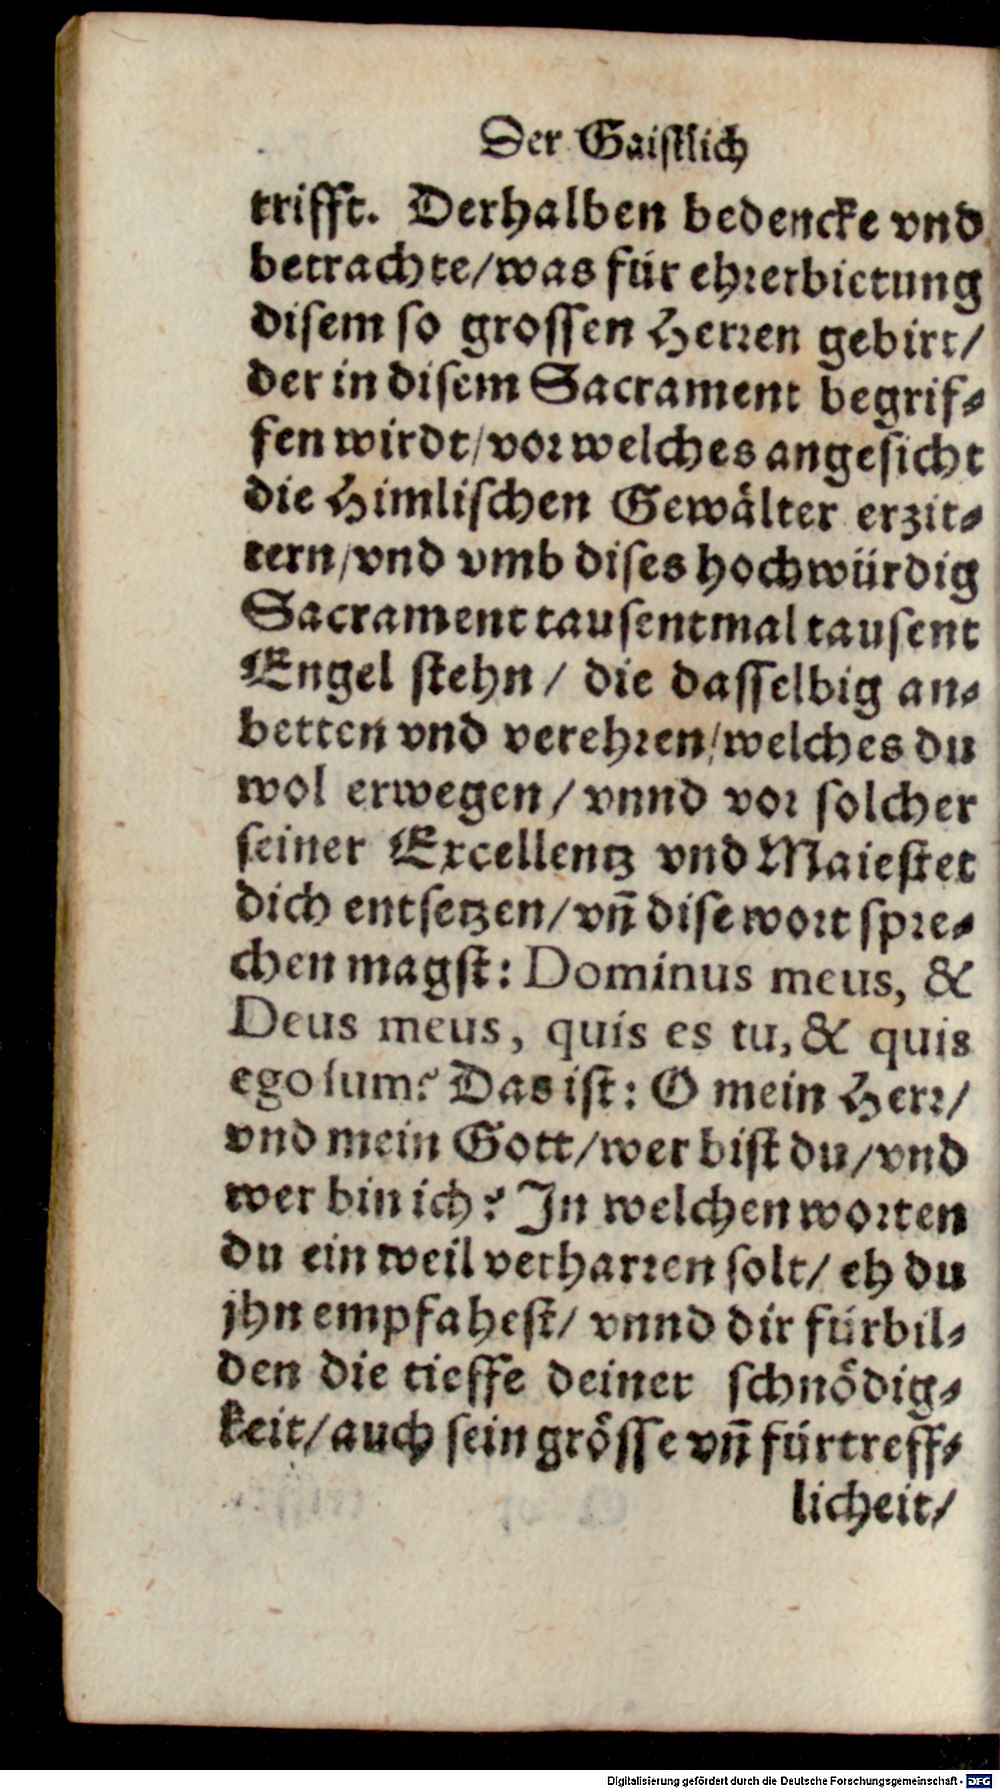 Der Gaistlich
trifft. Derhalben bedencke vnd
betrachte/was für ehrerbietung
disem so grossen Herren gebirt/
der in disem Sacrament begrif-
fen wirdt/vor welches angesicht
die Himlischen Gewälter erzit-
tern/vnd vmb dises hochwürdig
Sacrament tausentmal tausent
Engel stehn/ die dasselbig an-
betten vnd verehren/welches du
wol erwegen/vnnd vor solcher
seiner Excellentz vnd Maiestet
dich entsetzen/vñ dise wort spre-
chen magst: Dominus meus, &
Deus meus, quis es tu, & quis
ego sum? Das ist: O mein Herr/
vnd mein Gott/wer bist du/vnd
wer bin ich? In welchen worten
du ein weil verharren solt/ eh du
jhn empfahest/ vnnd dir fürbil-
den die tieffe deiner schnödig-
keit/auch sein grösse vñ fürtreff-
licheit/
Digitalisierung gefördert durch die Deutsche Forschungsgemeinschaft - DFG